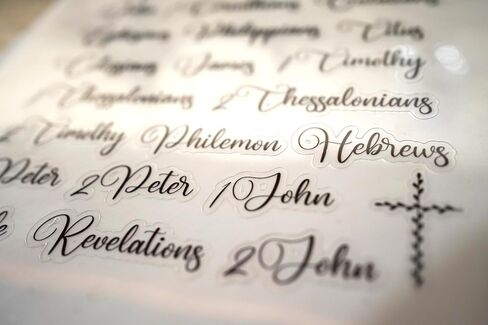 Philippians Titus
James 1 Timothy
1 Thessalonians 2 Thessalonians
2 Timothy Philemon Hebrews
Peter 2 Peter 1 John
Revelations 2 John